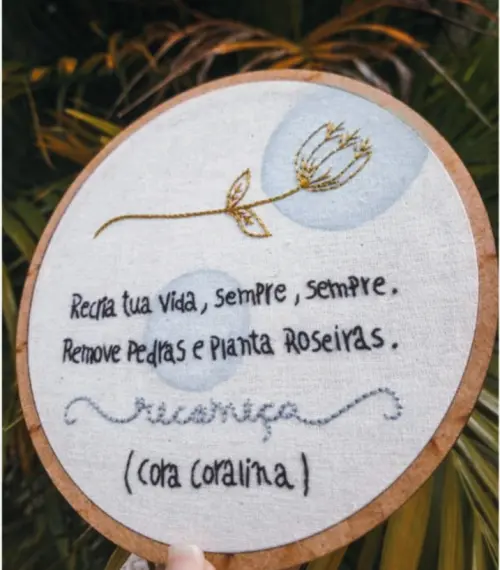 Recria tua vida, sempre, sempre.
Remove Pedras e Planta Roseiras.
recomeça
(Cora Coralina)